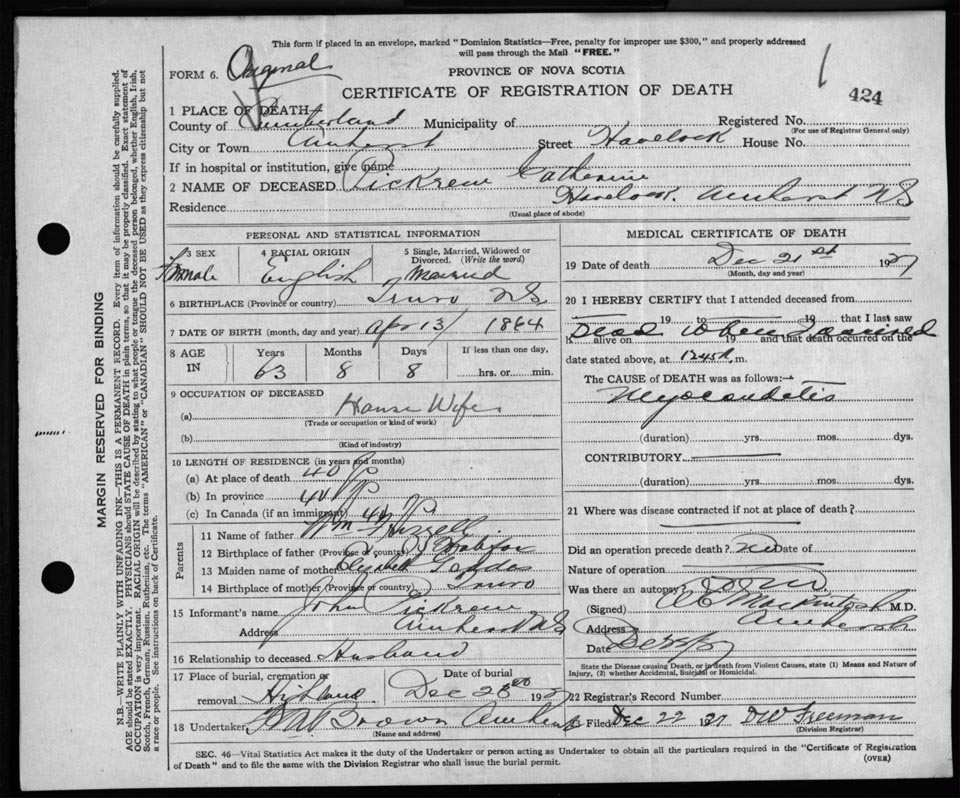 This form if placed in an envelope, marked "Dominion Statistics—Free, penalty for improper use $300," and properly addressed
will pass through the Mail "FREE."
FORM 6. Original
PROVINCE OF NOVA SCOTIA
CERTIFICATE OF REGISTRATION OF DEATH
424
1 PLACE OF DEATH
County of Cumberland Municipality of
Registered No.
(For use of Registrar General only)
City or Town Amherst Street Havelock House No.
If in hospital or institution, give name
2 NAME OF DECEASED Catherine
Residence Havelock. Amherst NS
(Usual place of abode)
PERSONAL AND STATISTICAL INFORMATION
3 SEX Female
4 RACIAL ORIGIN English
5 Single, Married, Widowed or Divorced. (Write the word) Married
6 BIRTHPLACE (Province or country) Truro NS
7 DATE OF BIRTH (month, day and year) Apr 13/ 1864
8 AGE IN Years 63 Months 8 Days 8 If less than one day, hrs. or min.
9 OCCUPATION OF DECEASED
(a) House Wife
(Trade or occupation or kind of work)
(b)
(Kind of industry)
10 LENGTH OF RESIDENCE (in years and months)
(a) At place of death 40
(b) In province
(c) In Canada (if an immigrant)
Parents
11 Name of father Wm
12 Birthplace of father (Province or country)
13 Maiden name of mother Elizabeth
14 Birthplace of mother (Province or country) Truro
15 Informant's name John
Address Amherst NS
16 Relationship to deceased Husband
17 Place of burial, cremation or removal Highland
Date of burial Dec 23 192
18 Undertaker Brown Amherst
(Name and address)
MEDICAL CERTIFICATE OF DEATH
19 Date of death Dec 21st 1927
(Month, day and year)
20 I HEREBY CERTIFY that I attended deceased from
19 to 19 that I last saw
h alive on 19 and that death occurred on the
Dead When I arrived
date stated above, at 1245 m.
The CAUSE of DEATH was as follows:—
Myocarditis
(duration) yrs. mos. dys.
CONTRIBUTORY
(duration) yrs. mos. dys.
21 Where was disease contracted if not at place of death?
Did an operation precede death? No Date of
Nature of operation
Was there an autopsy?
(Signed) MacKintosh M.D.
Address Amherst
Date
State the Disease causing Death, or in death from Violent Causes, state (1) Means and Nature of
Injury, (2) whether Accidental, Suicidal or Homicidal.
22 Registrar's Record Number
23 Filed Dec 22 1927 DW Freeman
(Division Registrar)
SEC. 46—Vital Statistics Act makes it the duty of the Undertaker or person acting as Undertaker to obtain all the particulars required in the "Certificate of Registration
of Death" and to file the same with the Division Registrar who shall issue the burial permit.
(OVER)
MARGIN RESERVED FOR BINDING
N.B.—WRITE PLAINLY WITH UNFADING INK—THIS IS A PERMANENT RECORD. Every item of information should be carefully supplied.
AGE should be stated EXACTLY. PHYSICIANS should STATE CAUSE OF DEATH in plain terms, so that it may be properly classified. Exact statement of
OCCUPATION is very important. RACIAL ORIGIN will be described by stating to what people or tongue the deceased person belonged, whether English, Irish,
Scotch, French, German, Russian, Ruthenian, etc. The terms "AMERICAN" or "CANADIAN" SHOULD NOT BE USED as they express citizenship but not
a race or people. See instructions on back of Certificate.